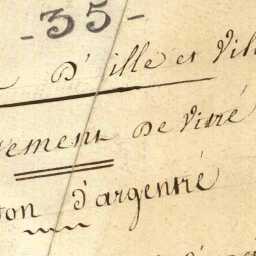 - 35 -
D'ille et Vil
ement De Vitré
on d'argentré